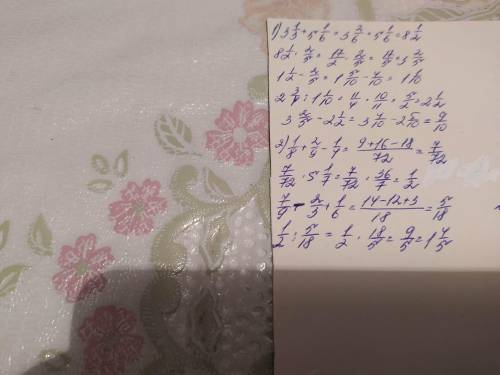 1) 3 1/3 + 5 1/6 = 3 2/6 + 5 1/6 = 8 1/2
8 1/2 · 2/5 = 17/2 · 2/5 = 17/5 = 3 2/5
1 1/2 - 2/5 = 1 5/10 - 4/10 = 1 1/10
2 3/4 : 1 1/10 = 11/4 · 10/11 = 5/2 = 2 1/2
3 2/5 - 2 1/2 = 3 4/10 - 2 5/10 = 9/10
2) 1/8 + 2/9 - 1/4 = 9+16-18/72 = 7/72
7/72 · 5 1/7 = 7/72 · 36/7 = 1/2
7/9 - 2/3 + 1/6 = 14-12+3/18 = 5/18
1/2 : 5/18 = 1/2 · 18/5 = 9/5 = 1 4/5